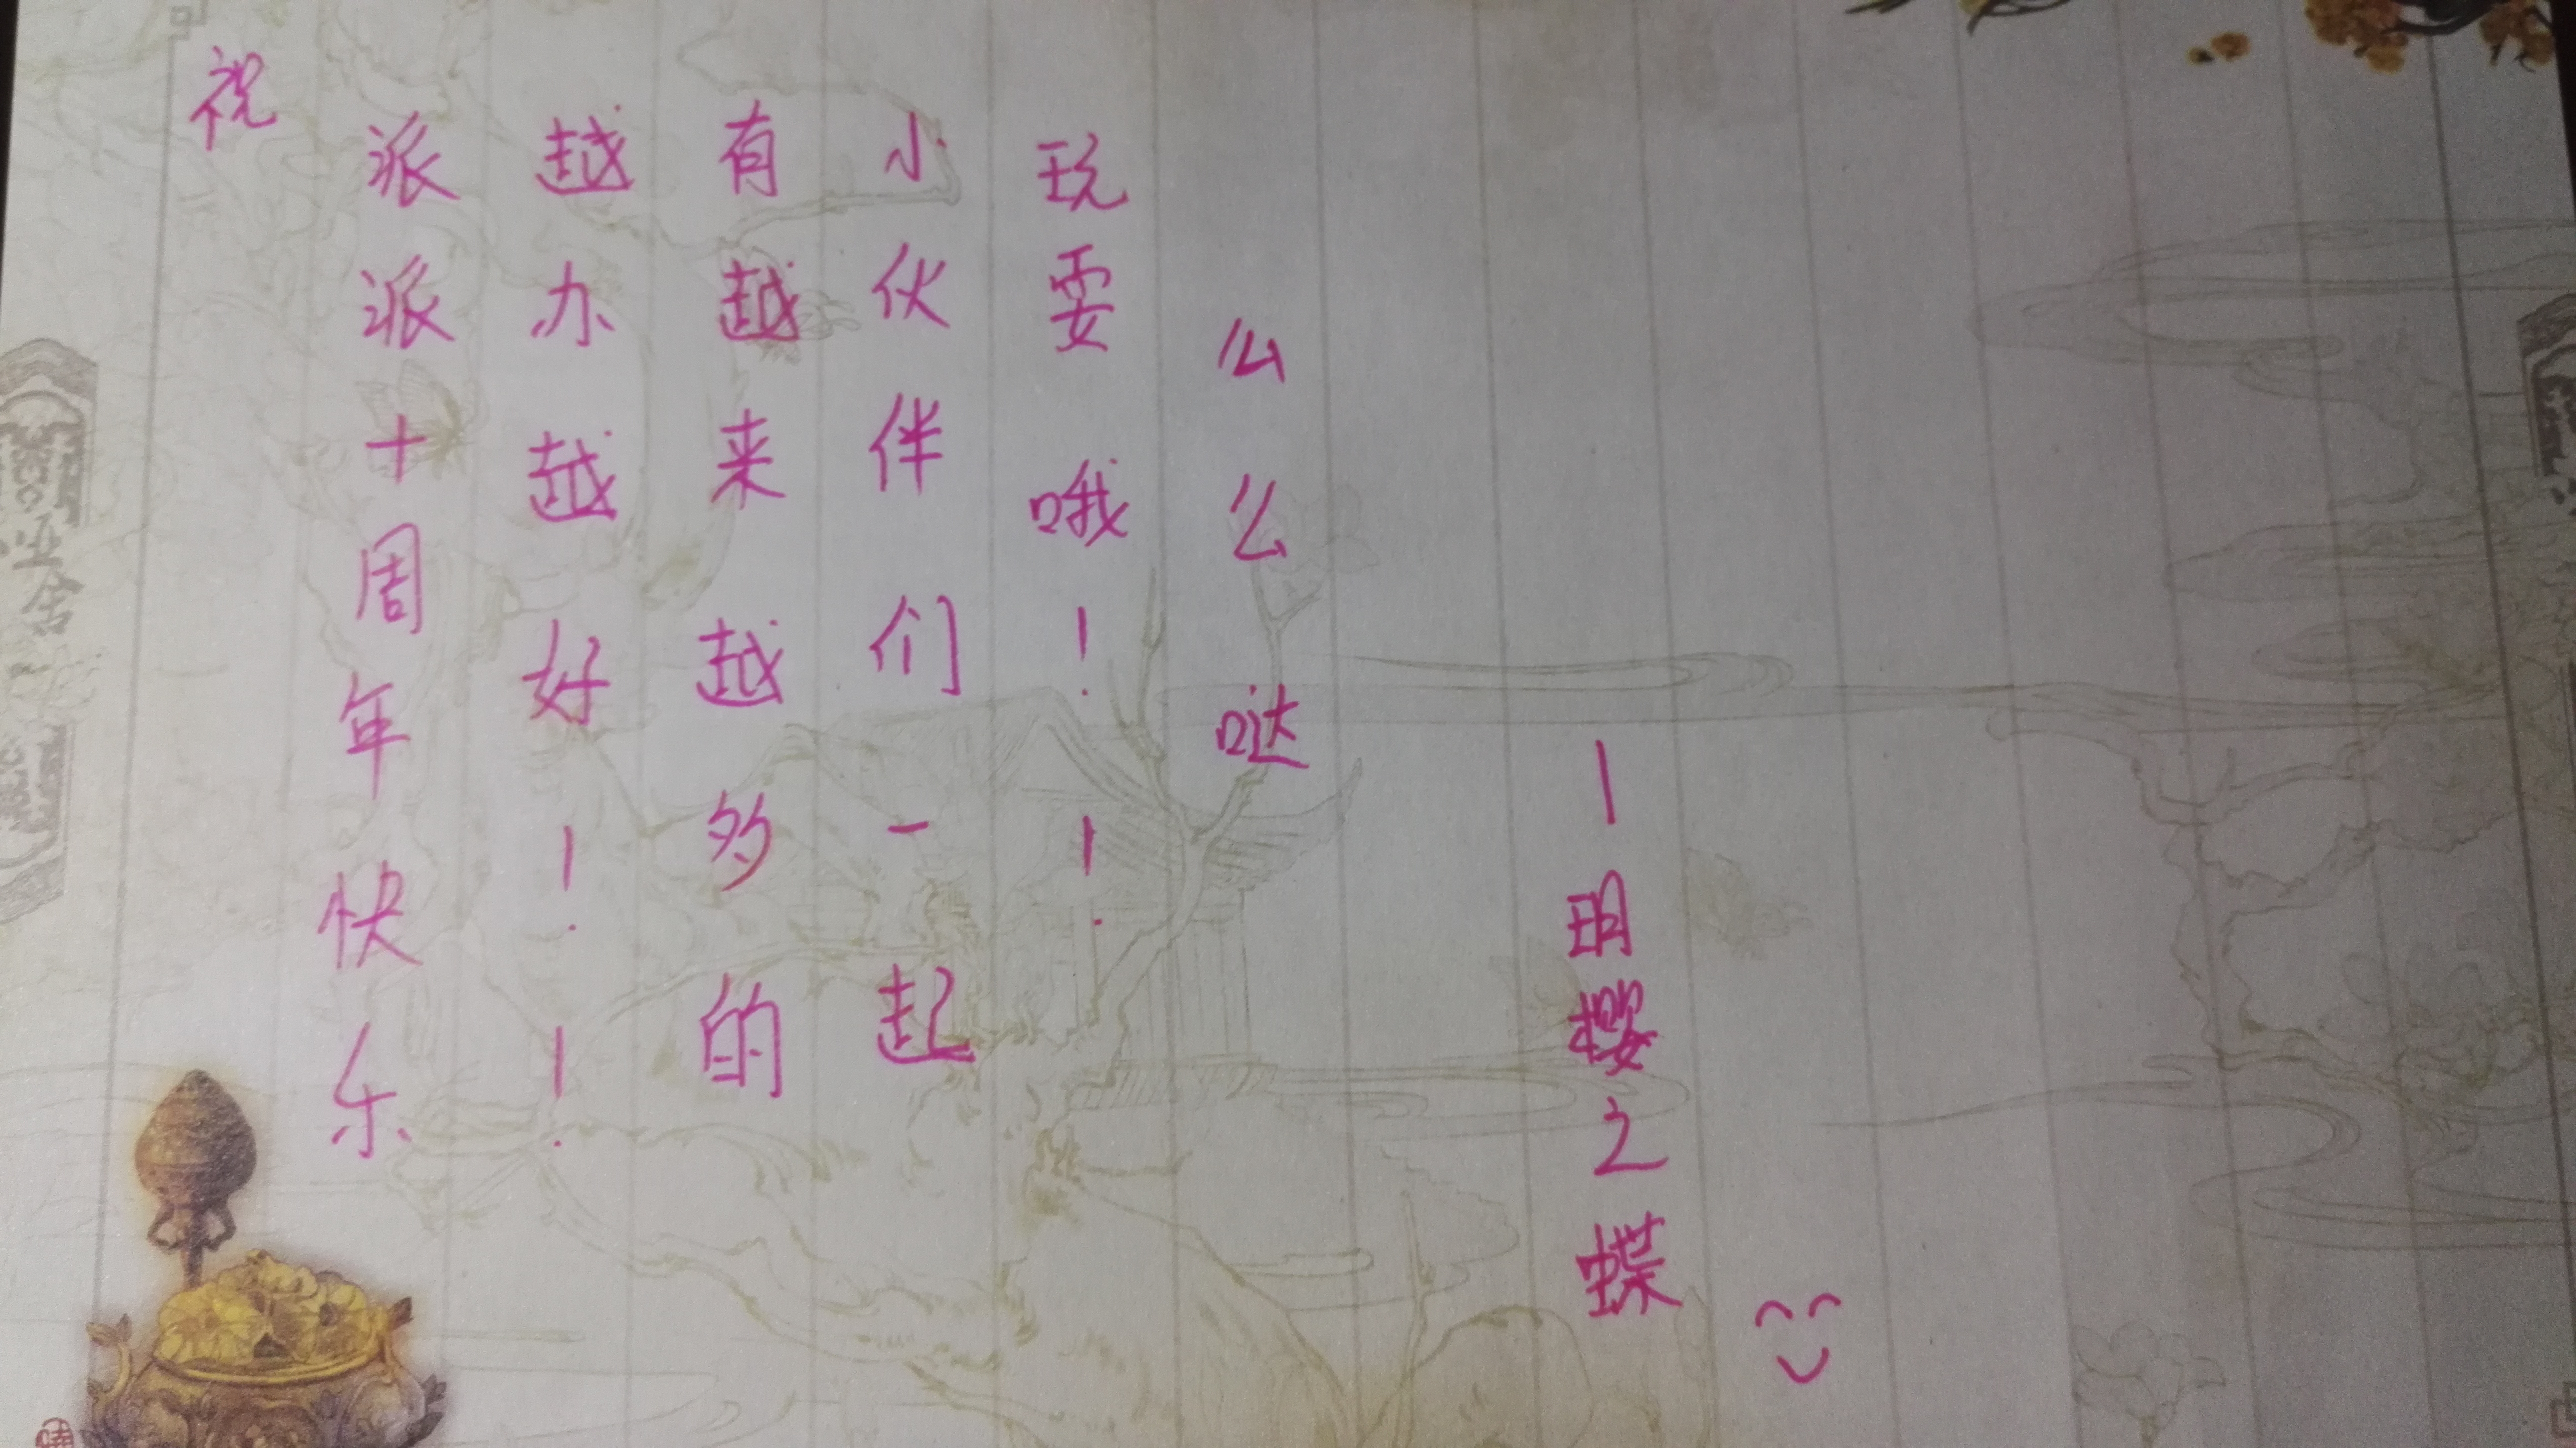 祝
派派十周年快乐
越办越好！！
有越来越多的
小伙伴们一起
玩耍哦！！
么么哒
—明樱之蝶